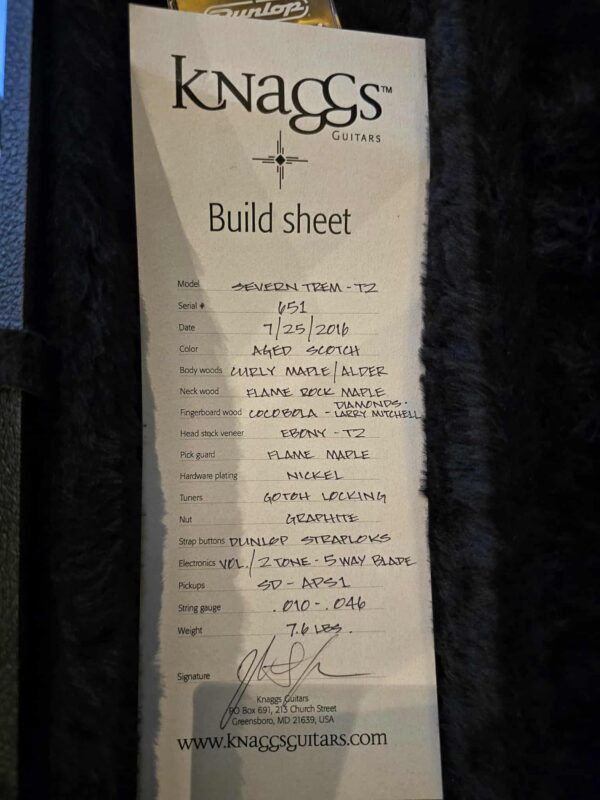 Dunlop
Knaggs™
Guitars
Build sheet
Model SEVERN TREM - T2
Serial # 651
Date 7/25/2016
Color AGED SCOTCH
Body woods CURLY MAPLE/ALDER
Neck wood FLAME ROCK MAPLE
DIAMONDS -
Fingerboard wood COCOBOLA - LARRY MITCHELL
Head stock veneer EBONY - T2
Pick guard FLAME MAPLE
Hardware plating NICKEL
Tuners GOTOH LOCKING
Nut GRAPHITE
Strap buttons DUNLOP STRAPLOKS
Electronics VOL./2 TONE - 5 WAY BLADE
Pickups SD - APS1
String gauge .010 - .046
Weight 7.6 LBS.
Signature
Knaggs Guitars
PO Box 691, 213 Church Street
Greensboro, MD 21639, USA
www.knaggsguitars.com